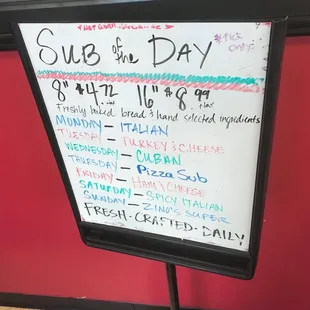 SUB of the DAY
*PICK
8" $4.72 +tax 16" $8.99 +tax
Freshly baked bread & hand selected ingredients
MONDAY - ITALIAN
TUESDAY - TURKEY & CHEESE
WEDNESDAY - CUBAN
THURSDAY - Pizza Sub
FRIDAY - HAM & CHEESE
SATURDAY - SPICY ITALIAN
SUNDAY - ZINO'S SUPER
FRESH-CRAFTED-DAILY